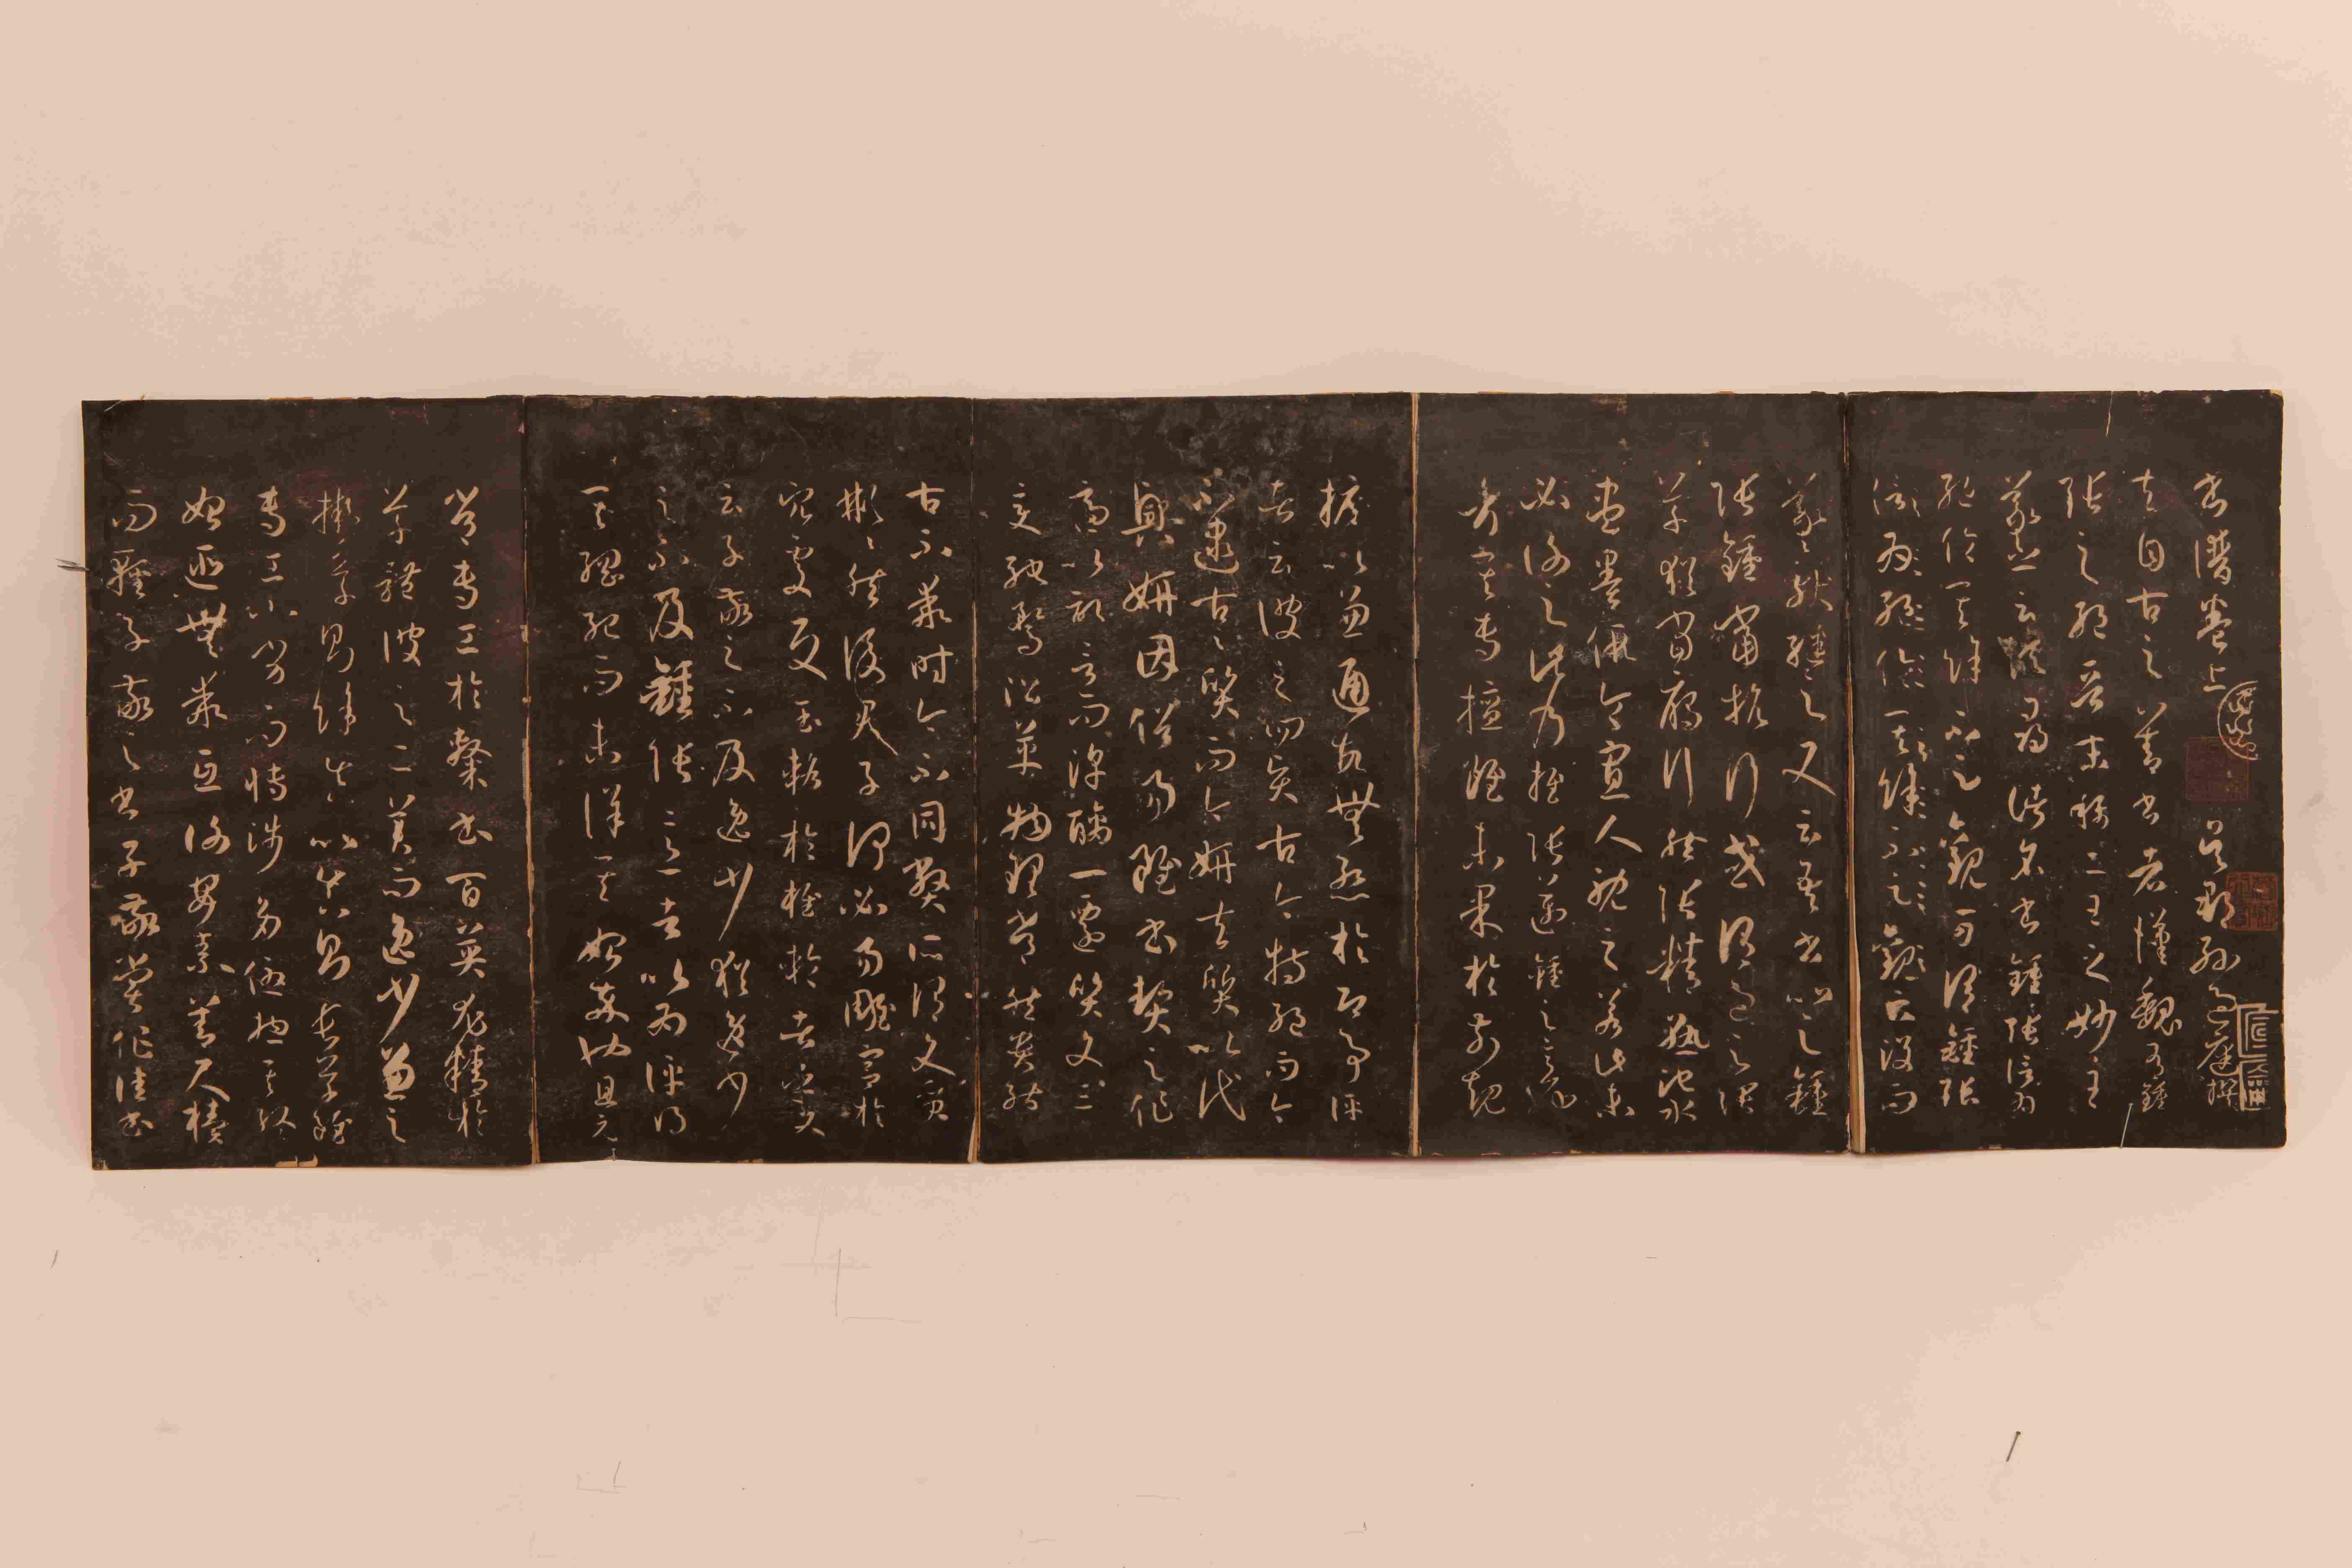 書譜卷上 吳郡孫過庭撰
夫自古之善書者漢魏有鍾
張之絕晉末稱二王之妙王
羲之云頃尋諸名書鍾張信為
絕倫其餘不足觀可謂鍾張
信為絕倫其餘不足觀云沒而
羲獻繼之又云吾書比之鍾
張鍾當抗行或謂過之張
草猶當鴈行然張精熟池水
盡墨假令寡人耽之若此未
必謝之此乃推張邁鍾之意也
考其專擅雖未果於前規
摭以兼通故無慙於即事評
者云彼之四賢古今特絕而今
不逮古古質而今妍夫質以代
興妍因俗易雖書契之作
適以記言而淳醨一遷質文三
變馳騖沿革物理常然貴能
古不乖時今不同弊所謂文質
彬彬然後君子何必易雕宮於
穴處反玉輅於椎輪者乎又
云子敬之不及逸少猶逸少
之不及鍾張意者以為評得
其綱紀而未詳其始卒也且元
常專工於隸書百英尤精於
草體彼之二美而逸少兼之
擬草則餘真比真則長草雖
專工小劣而博涉多優揔其終
始匪無乖互謝安素善尺牘
而輕子敬之書子敬嘗作佳書